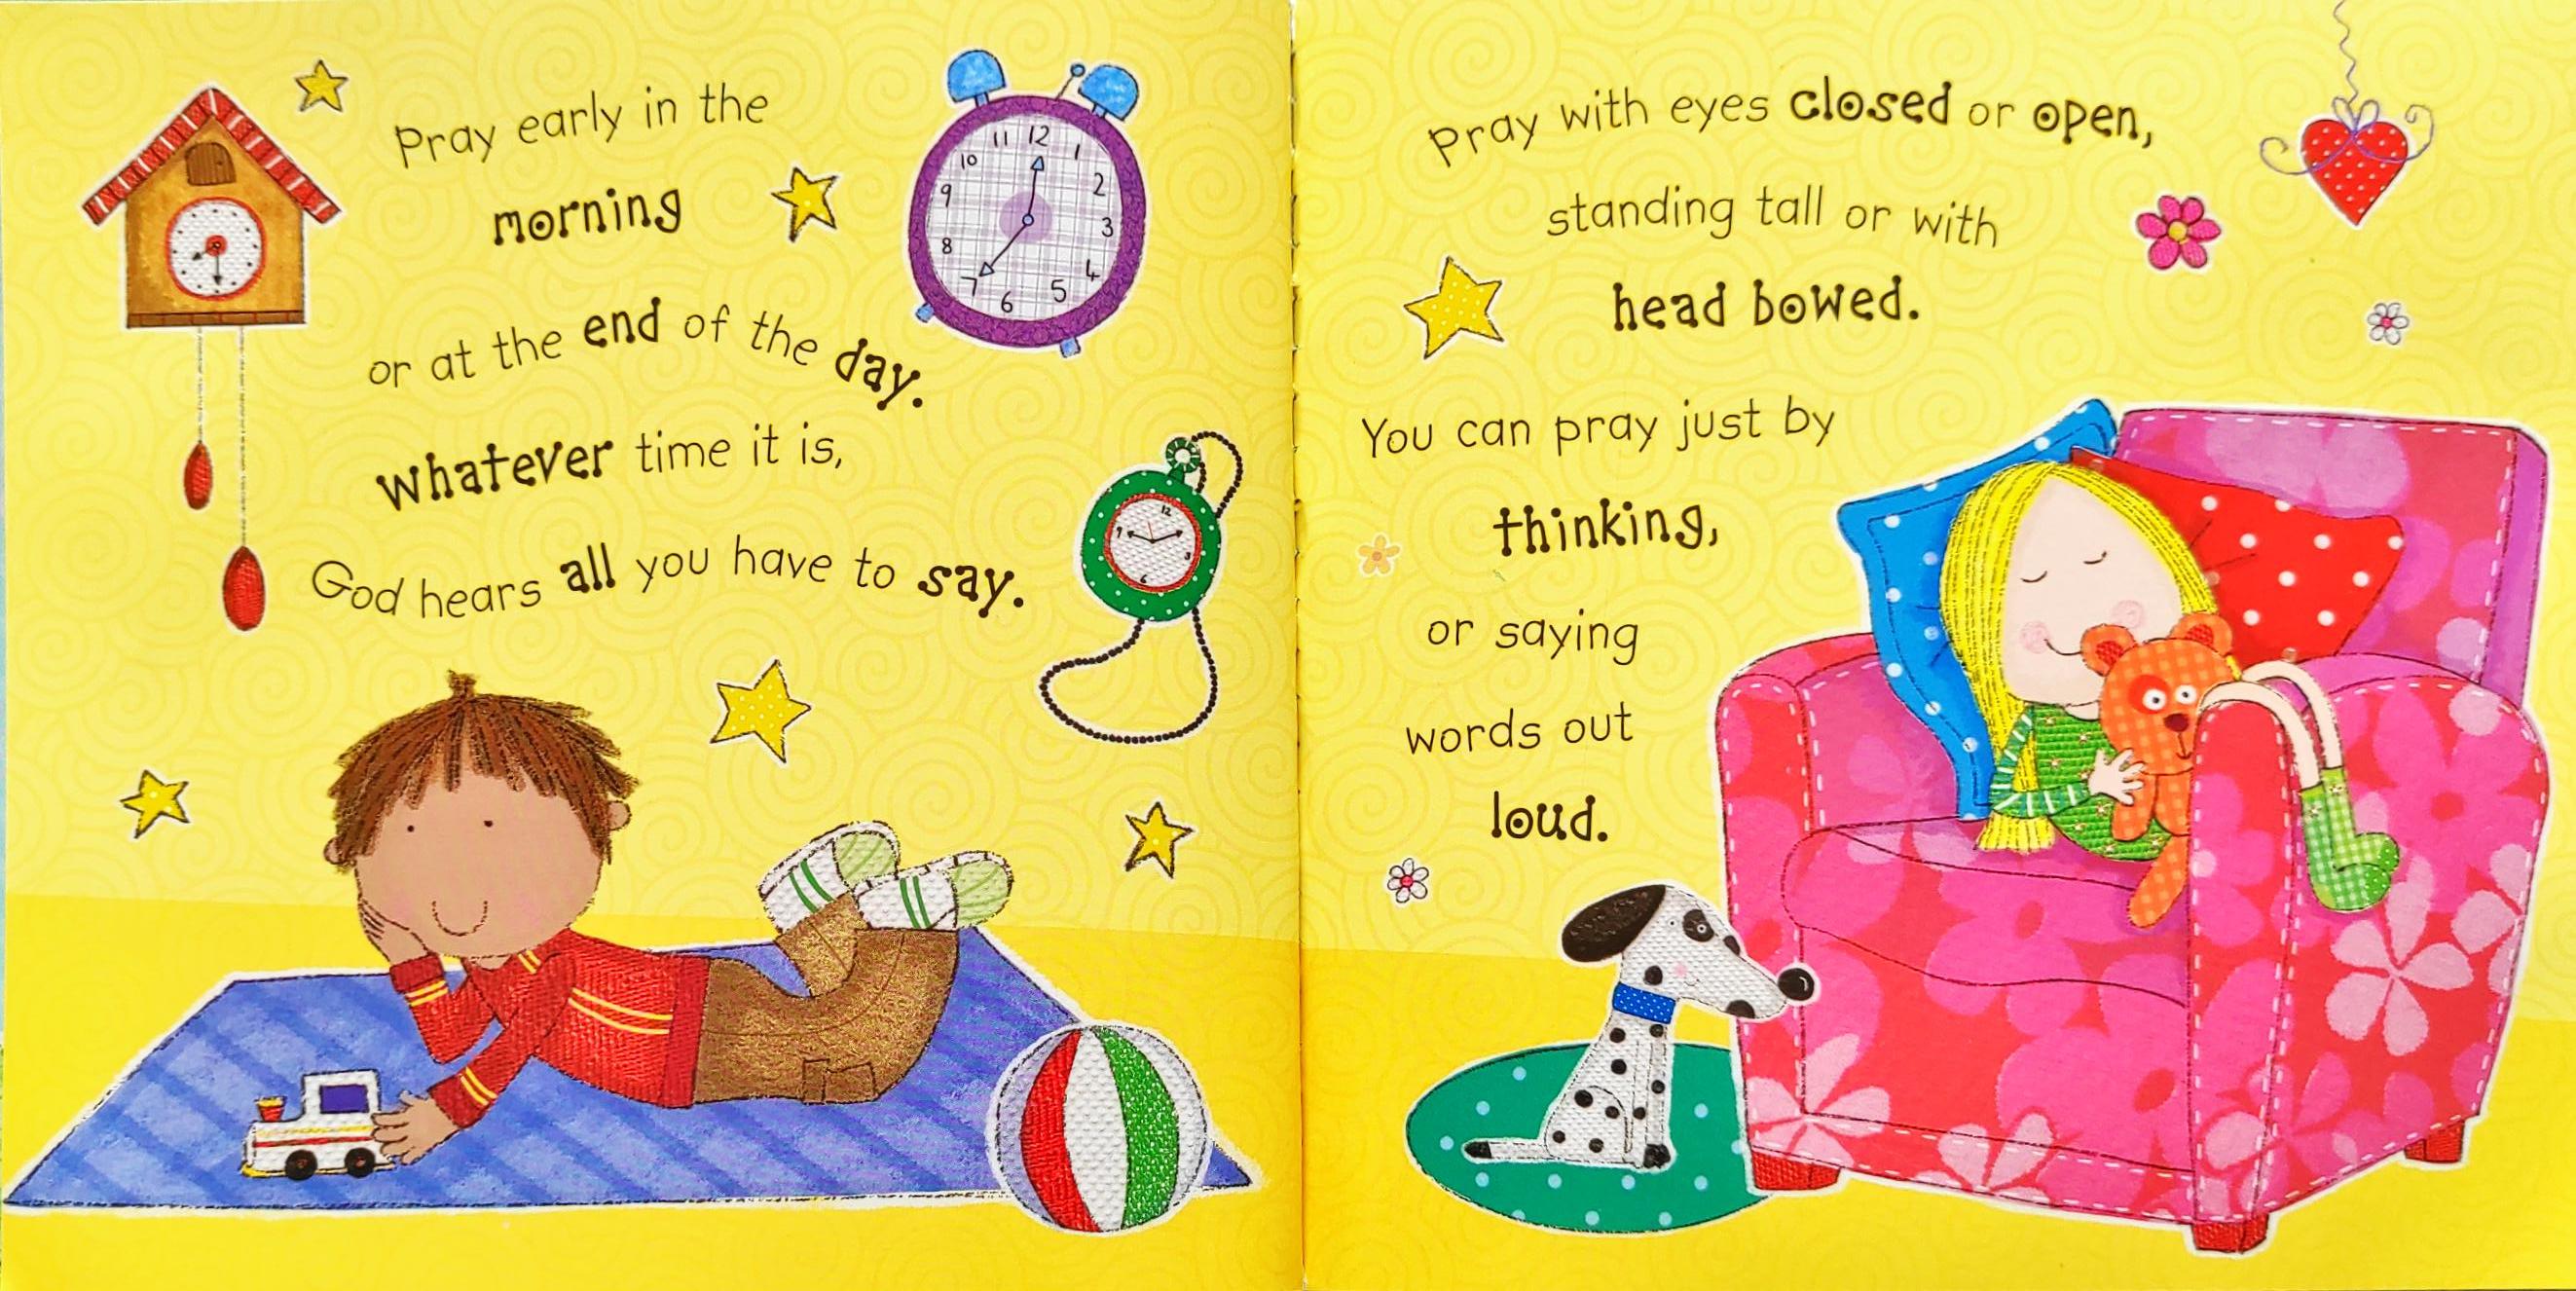 Pray early in the
morning
or at the end of the day.
whatever time it is,
God hears all you have to say.
11 12 1
10 2
9 3
8 4
7 6 5
12
9 3
6
Pray with eyes closed or open,
standing tall or with
head bowed.
You can pray just by
thinking,
or saying
words out
loud.